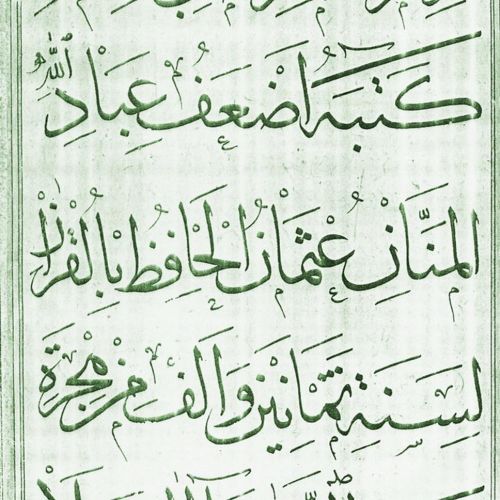 كَتَبَهُ أَضْعَفُ عِبَادِ اللّٰهِ
المَنَّانِ عُثْمَانُ الْحَافِظُ بِالْقُرْاٰنِ
لِسَنَةِ ثَمَانِينَ وَاَلْف مِنْ هِجْرَةِ